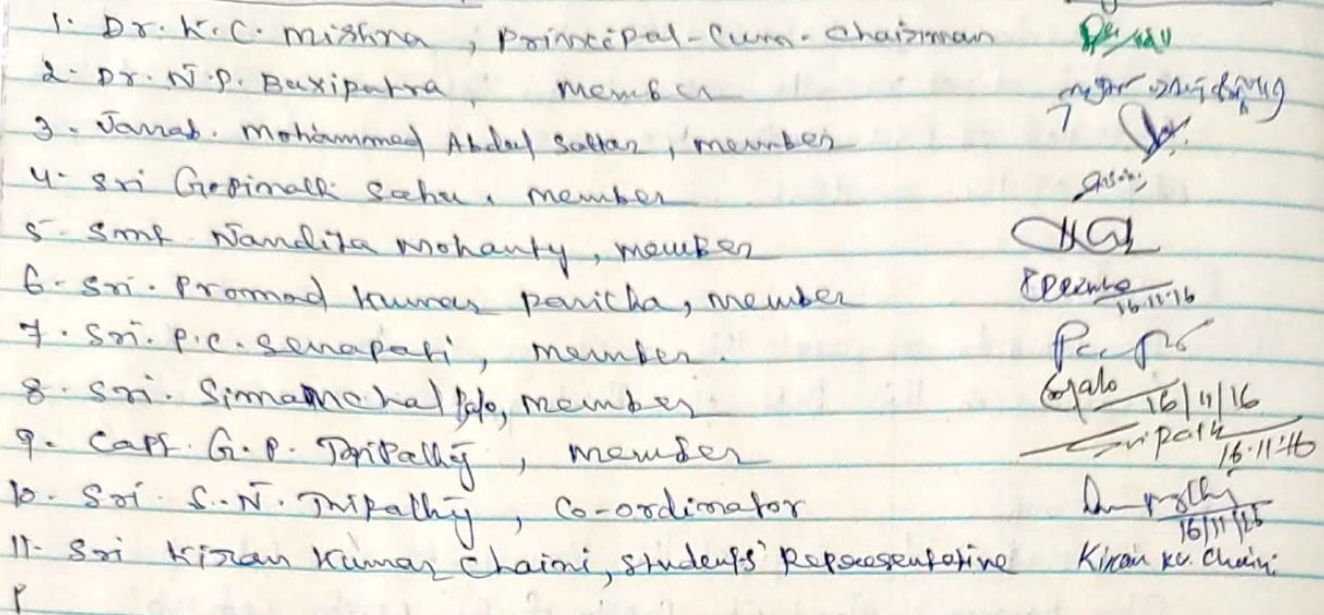 1. Dr. K. C. Mishra, Principal-Cum-Chairman
2. Dr. N. P. Baxipatra, member
3. Janab. Mohammed Abdul Sattar, member
4. Sri Gopinath Sahu, member
5. Smt. Nandita Mohanty, member
6. Sri. Promod Kumar Panicha, member 16.11.16
7. Sri. P.C. Senapati, member.
8. Sri. Simanchal Palo, member 16/11/16
9. Capt. G. P. Tripathy, member 16.11.16
10. Sri S. N. Tripathy, Co-ordinator
11. Sri Kiran Kumar Chaini, students' Representative Kiran ku. Chaini